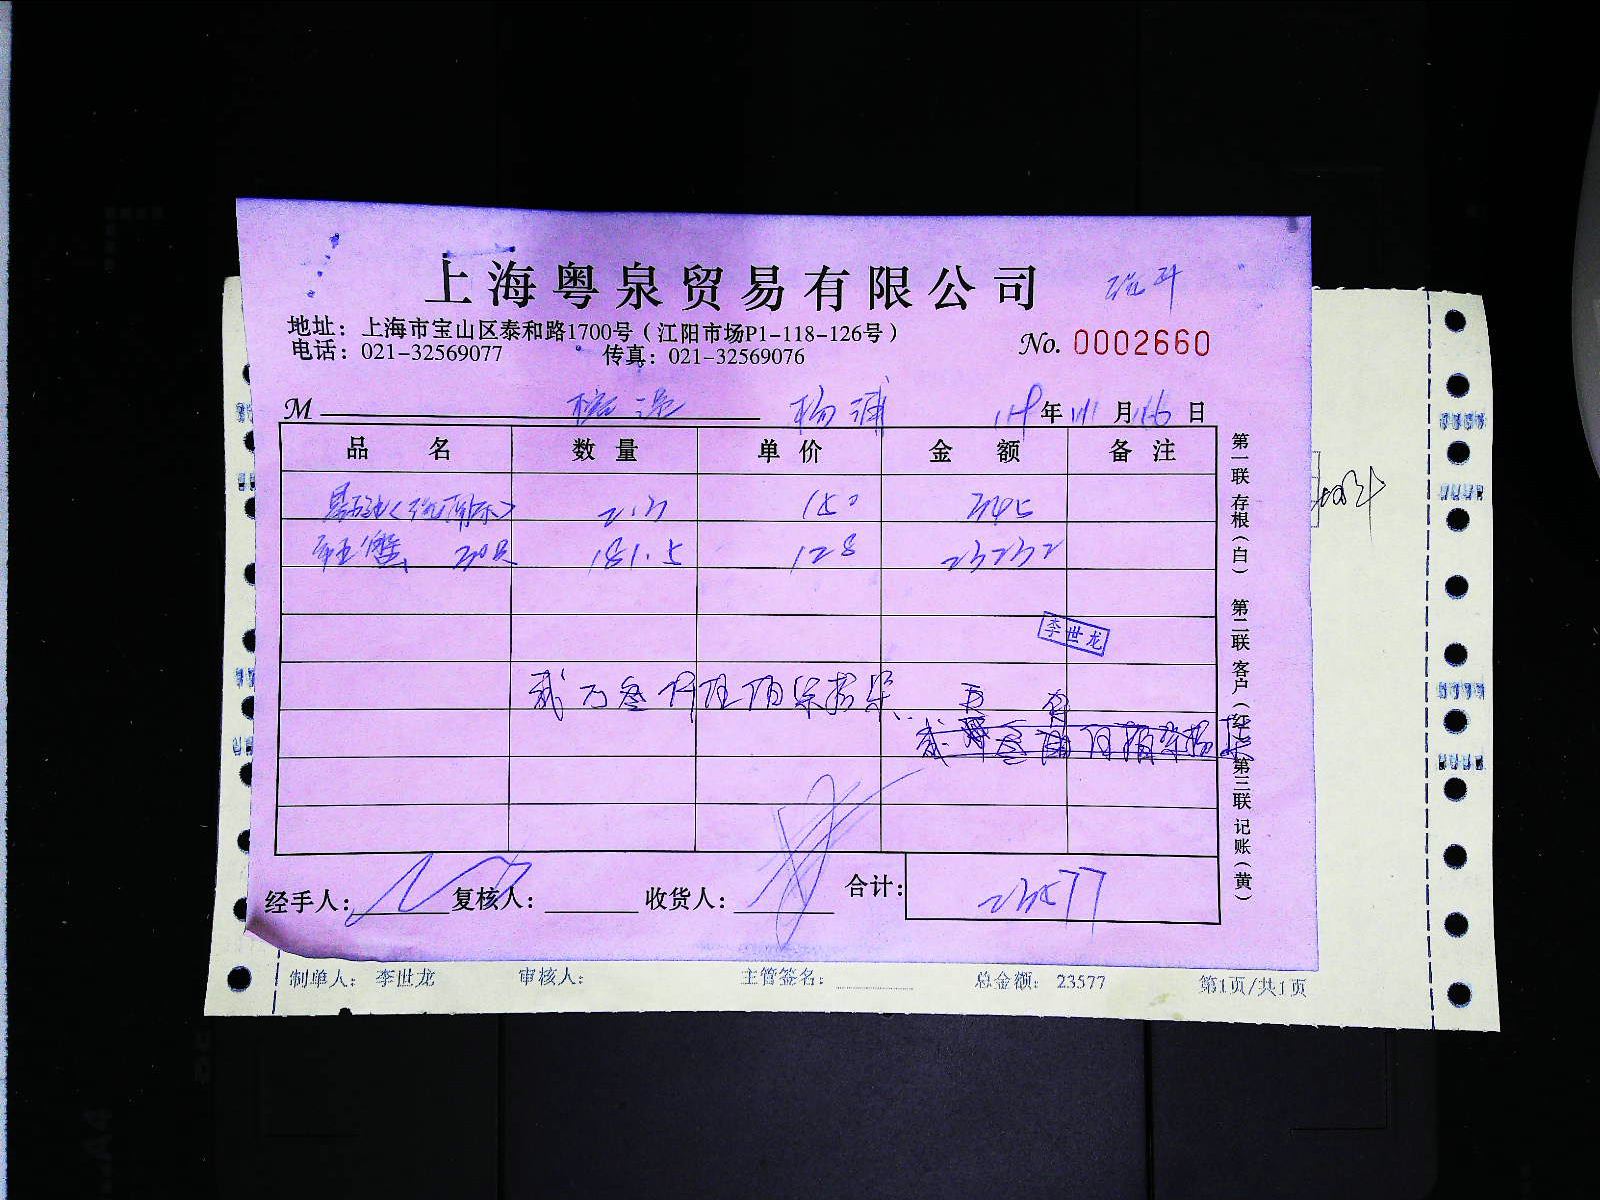 上海粤泉贸易有限公司
地址：上海市宝山区泰和路1700号（江阳市场P1-118-126号）
电话：021-32569077 传真：021-32569076
No. 0002660
M 杨浦 年 11 月 16 日
品名 数量 单价 金额 备注
2.3 150 345
帝王蟹 181.5 128 23232
李世龙
贰万叁仟伍佰柒拾柒
经手人： 复核人： 收货人： 合计：23577
第一联 存根（白） 第二联 客户（红） 第三联 记账（黄）
制单人： 李世龙 审核人： 主管签名： 总金额： 23577 第1页/共1页